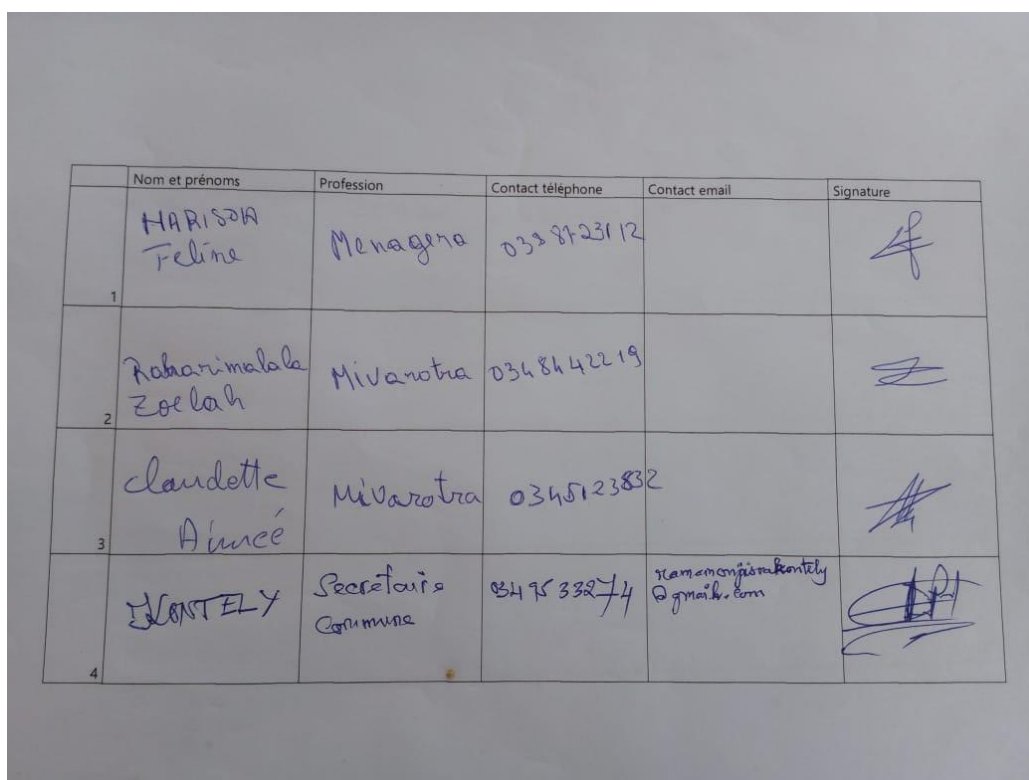 Nom et prénoms Profession Contact téléphone Contact email Signature
HARISOA
Feline
Menagera
0388723112
1
Rabarimalala
Zoelah
Mivarotra
0348442219
2
Claudette
Aimeé
Mivarotra
0345123832
3
KONTELY
Secrétaire
Commune
0349533274
@gmail.com
4